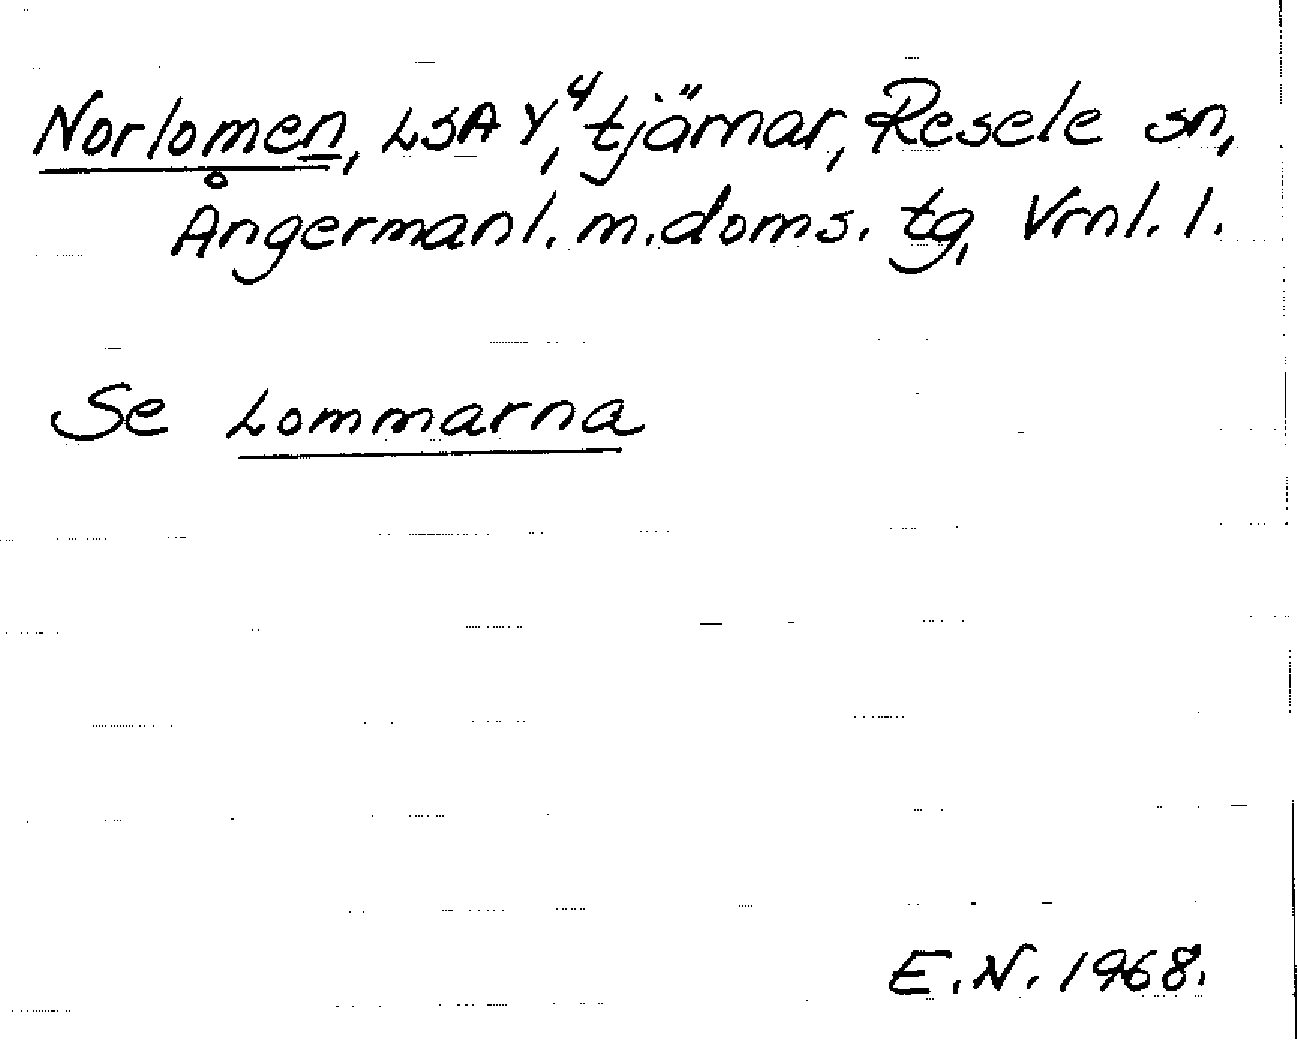 Norlomen, LSA Y⁴, tjärnar, Resele sn,
Ångermanl. m. doms. tg, Vrnl. l.
Se Lommarna
E.N. 1968.